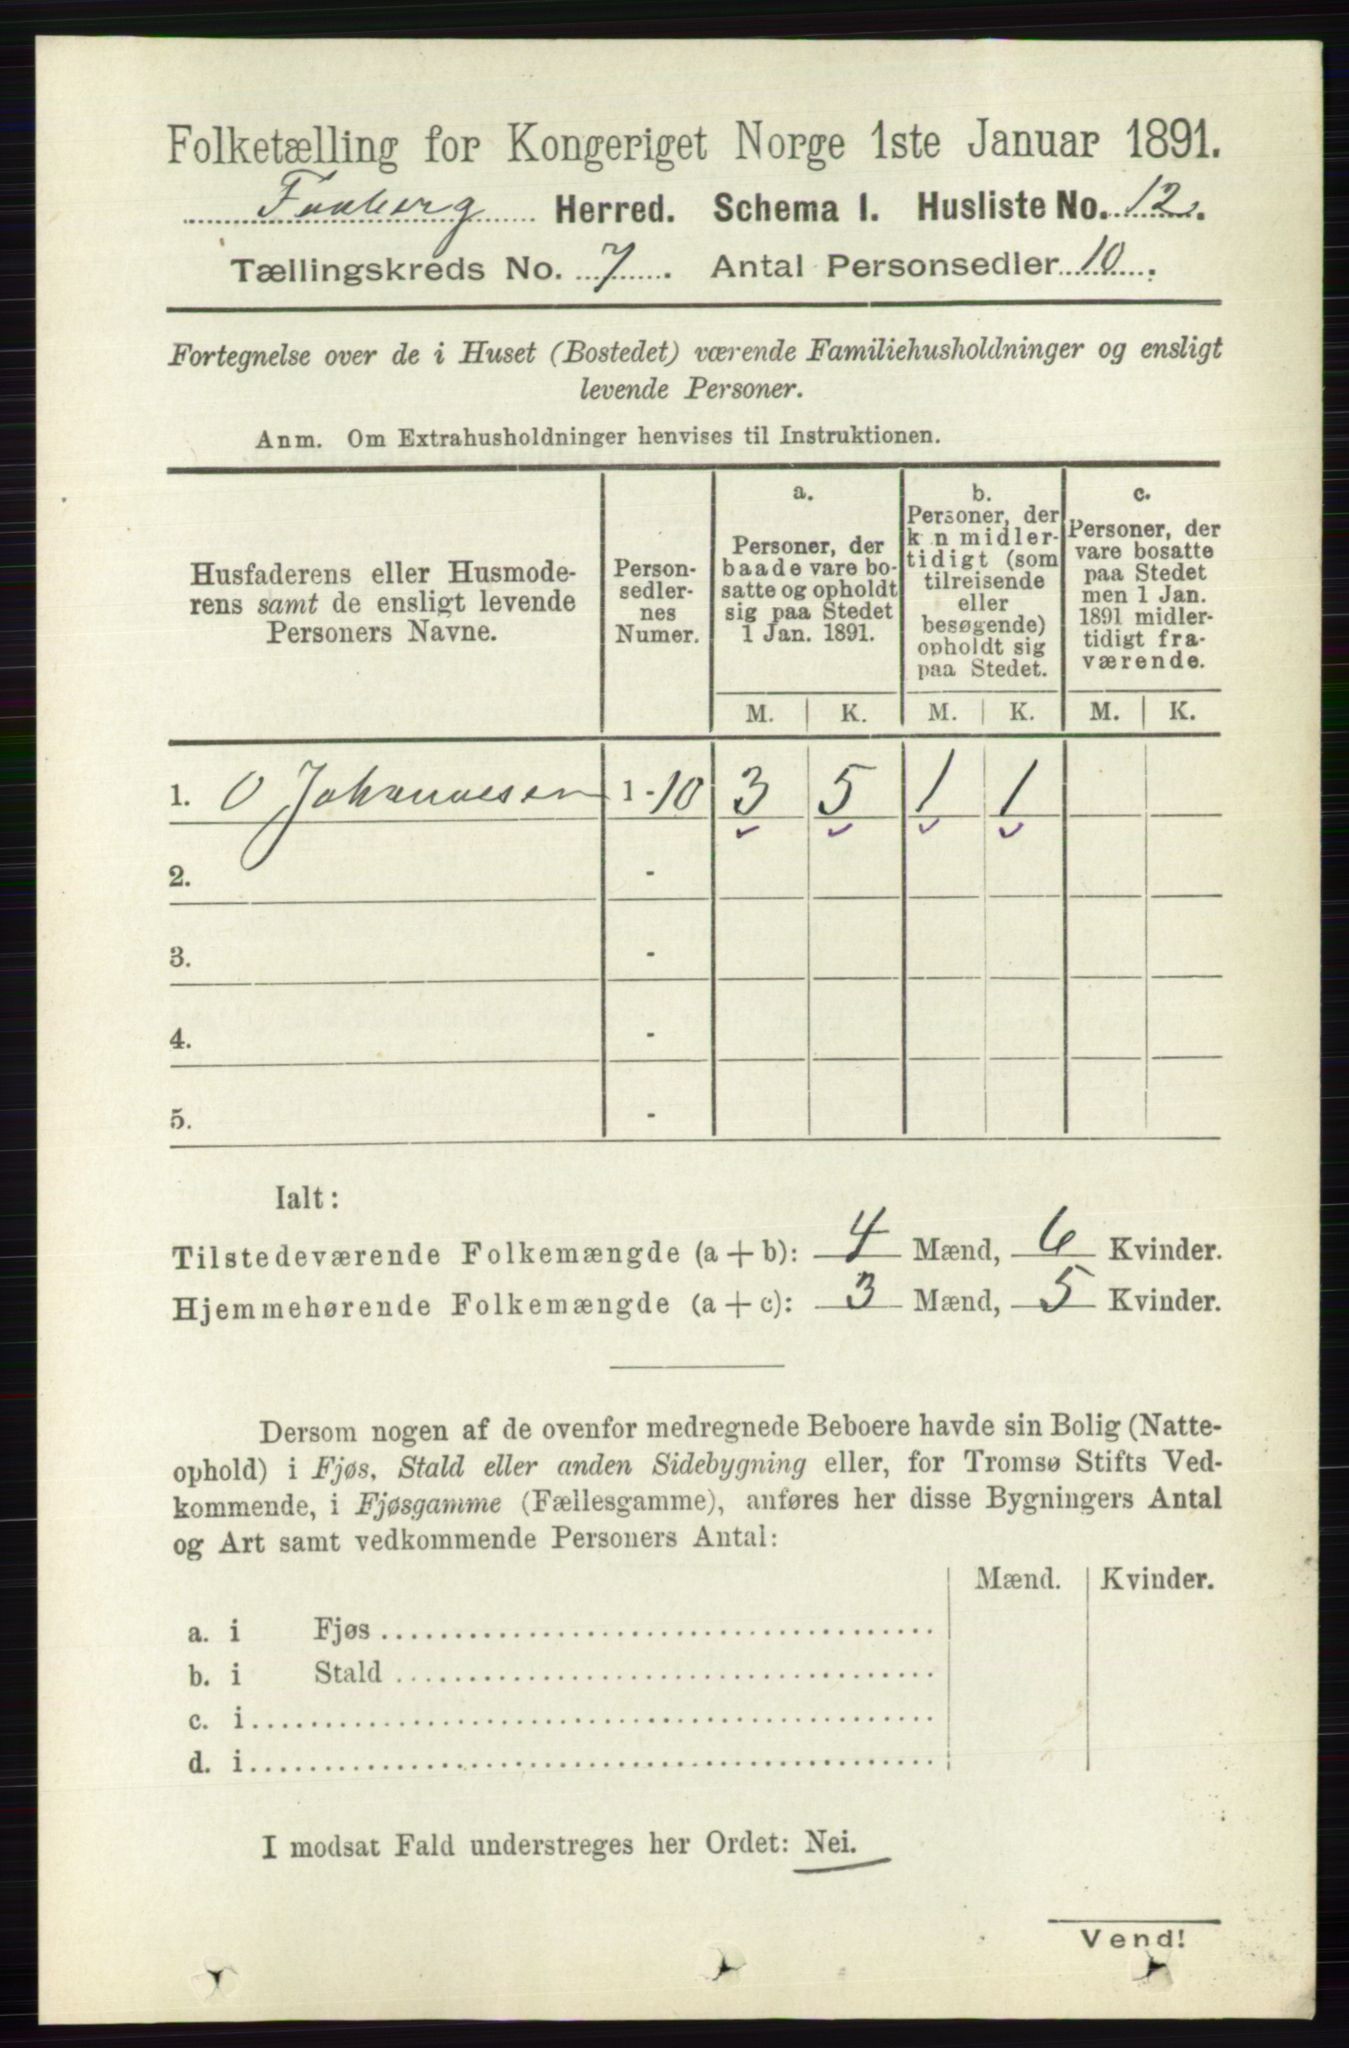 Folketælling for Kongeriget Norge 1ste Januar 1891.
Faaberg Herred. Schema I. Husliste No. 12.
Tællingskreds No. 7. Antal Personsedler 10.
Fortegnelse over de i Huset (Bostedet) værende Familiehusholdninger og ensligt
levende Personer.
Anm. Om Extrahusholdninger henvises til Instruktionen.
Husfaderens eller Husmode-
rens samt de ensligt levende
Personers Navne.
Person-
sedler-
nes
Numer.
a.
Personer, der
baade vare bo-
satte og opholdt
sig paa Stedet
1 Jan. 1891.
b.
Personer, der
kun midler-
tidigt (som
tilreisende
eller
besøgende)
opholdt sig
paa Stedet.
c.
Personer, der
vare bosatte
paa Stedet
men 1 Jan.
1891 midler-
tidigt fra-
værende.
M. K. M. K. M. K.
1. O Johannesen 1-10 3 5 1 1
2. -
3. -
4. -
5. -
Ialt:
Tilstedeværende Folkemængde (a + b): 4 Mænd, 6 Kvinder.
Hjemmehørende Folkemængde (a + c): 3 Mænd, 5 Kvinder.
Dersom nogen af de ovenfor medregnede Beboere havde sin Bolig (Natte-
ophold) i Fjøs, Stald eller anden Sidebygning eller, for Tromsø Stifts Ved-
kommende, i Fjøsgamme (Fællesgamme), anføres her disse Bygningers Antal
og Art samt vedkommende Personers Antal:
Mænd. Kvinder.
a. i Fjøs
b. i Stald
c. i
d. i
I modsat Fald understreges her Ordet: Nei.
Vend!